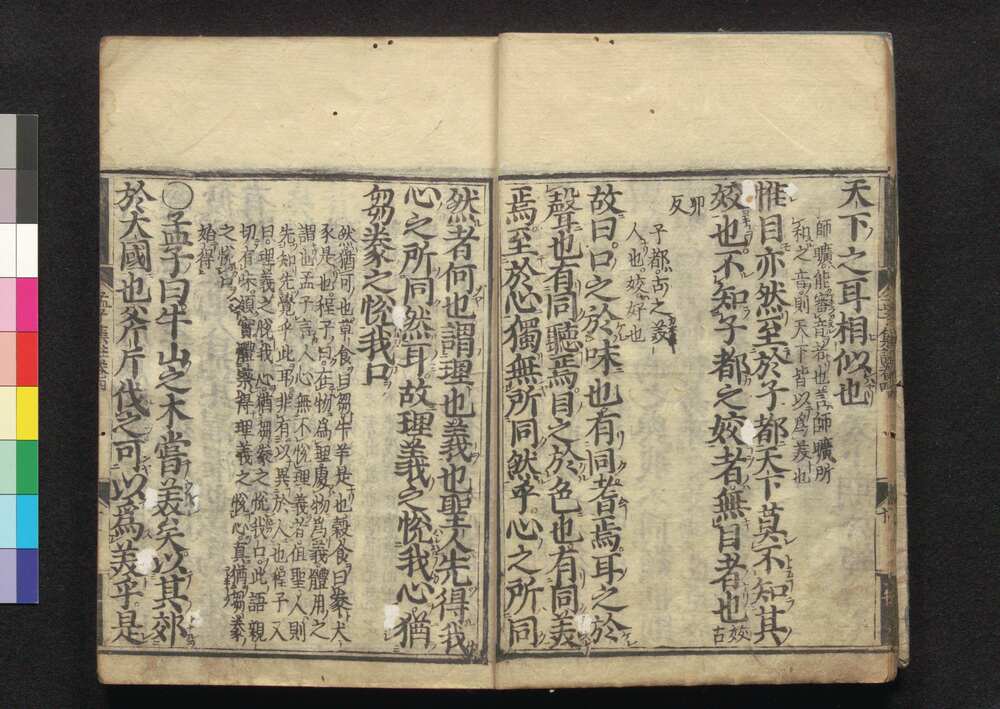 天下之耳相似也
師曠能審音者也言師曠所
和之音則天下皆以為美也
惟目亦然至於子都天下莫不知其
姣也不知子都之姣者無目者也姣古
卯反
子都古之美
人也姣好也
故曰口之於味也有同耆焉耳之於
聲也有同聽焉目之於色也有同美
焉至於心獨無所同然乎心之所同
然者何也謂理也義也聖人先得我
心之所同然耳故理義之悅我心猶
芻豢之悅我口
然猶可也草食曰芻牛羊是也穀食曰豢犬
豕是也程子曰在物為理處物為義體用之
謂也孟子言人心無不悅理義者但聖人則
先知先覺乎此耳非有以異於人也程子又
曰理義之悅我心猶芻豢之悅我口此語親
切有味須實體察得理義之悅心真猶芻豢
之悅口
始得
○孟子曰牛山之木嘗美矣以其郊
於大國也斧斤伐之可以為美乎是